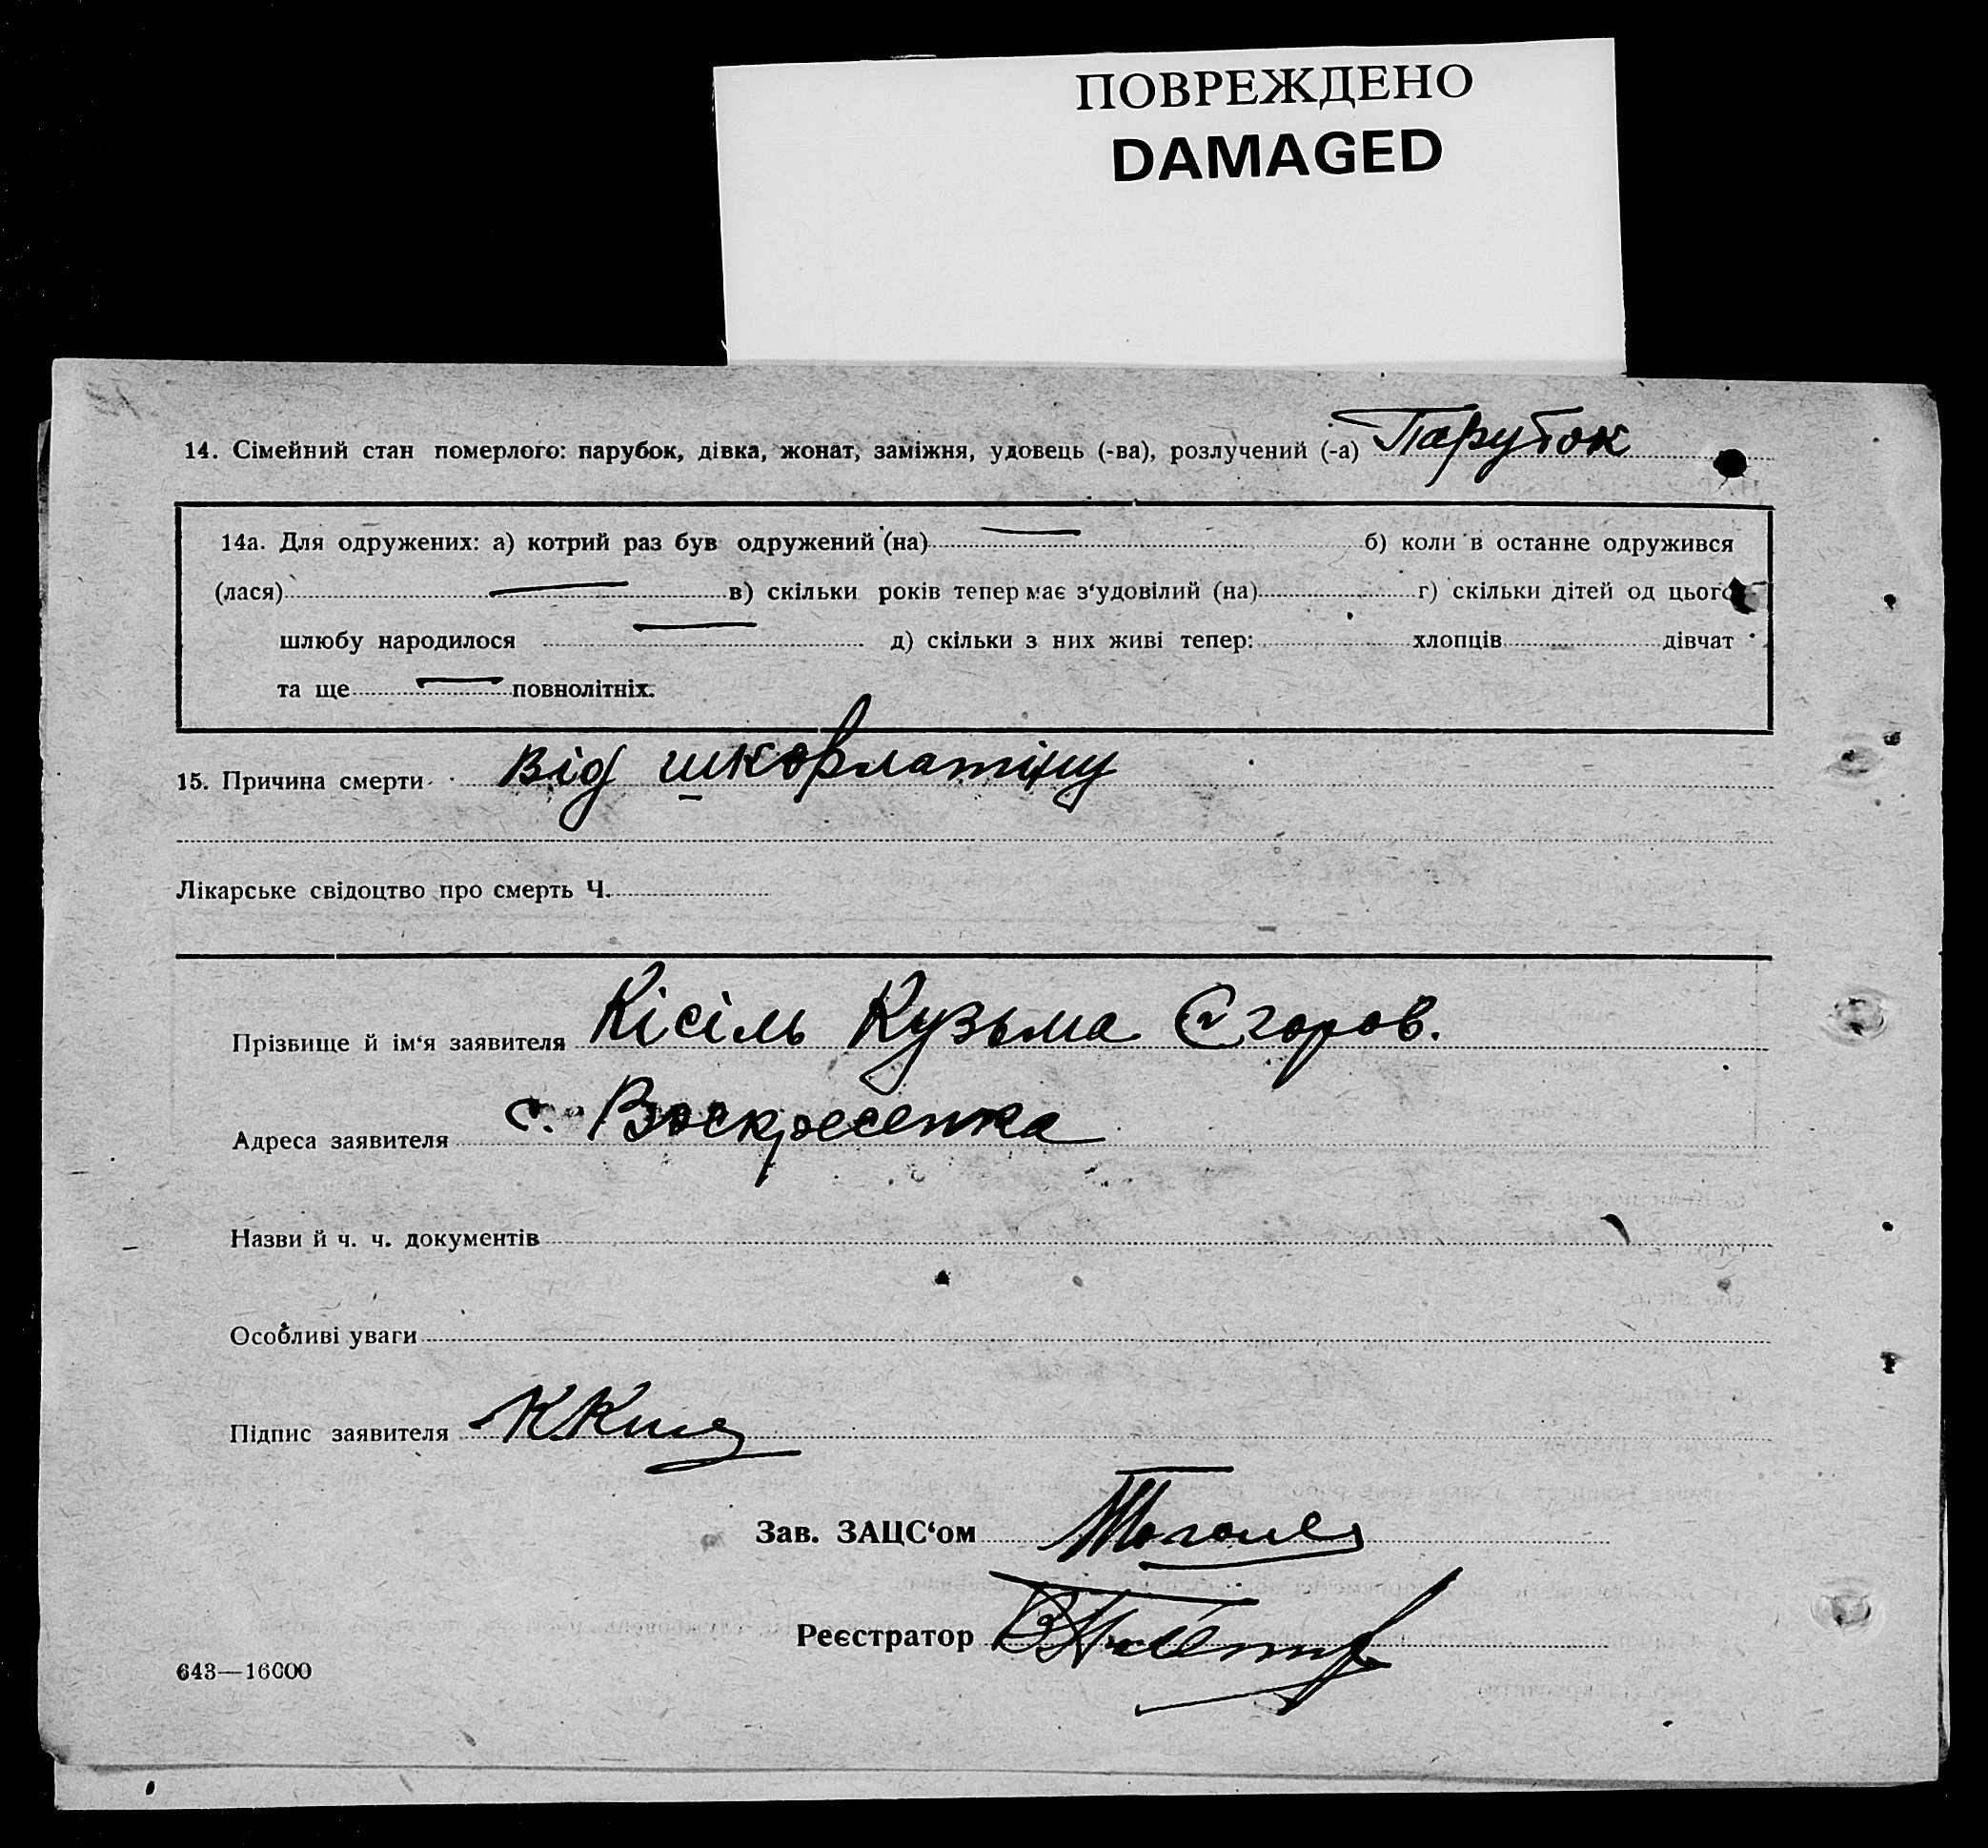 ПОВРЕЖДЕНО
DAMAGED
14. Сімейний стан померлого: парубок, дівка, жонат, заміжня, удовець (-ва), розлучений (-а) Парубок
14а. Для одружених: а) котрий раз був одружений (на) — б) коли в останнє одружився
(лася) — в) скільки років тепер має з‘удовілий (на) г) скільки дітей од цього
шлюбу народилося — д) скільки з них живі тепер: хлопців дівчат
та ще — повнолітніх.
15. Причина смерти Від шкорлатіну
Лікарське свідоцтво про смерть Ч.
Прізвище й ім‘я заявителя Кісіль Кузьма Єгоров.
Адреса заявителя с. Воскресенка
Назви й ч. ч. документів
Особливі уваги
Підпис заявителя
Зав. ЗАЦС‘ом
Реєстратор
643—16000